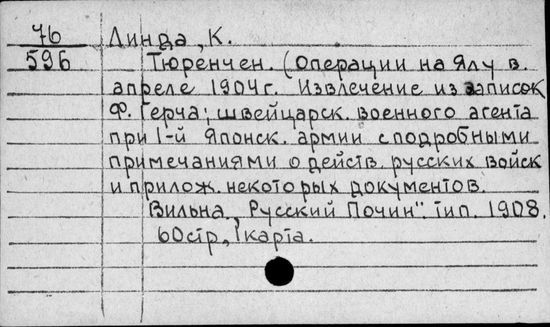 76
596
Линда, К.
Тюренчен. (Операции на Ялу в.
апреле 1904г. Извлечение из записок
Ф. Герча; швейцарск. военного агента
при 1-й Японск. армии с подробными
примечаниями о действ. русских войск
и прилож. некоторых документов.
Вильна, „Русский Почин". тип. 1908.
60стр, 1карта.